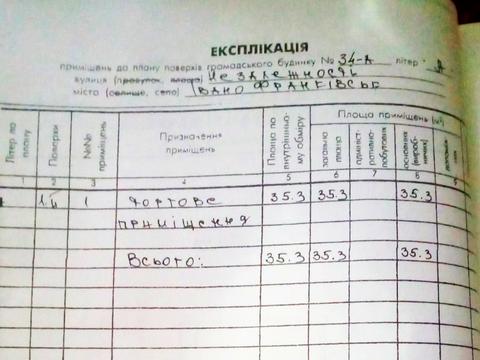 ЕКСПЛІКАЦІЯ
приміщень до плану поверхів громадського будинку № 34-А літер "А"
вулиця (провулок, площа) Незалежность
місто (селище, село) Івано Франківськ
Літер по плану Поверхи №№ приміщень Призначення приміщень Площа по внутрішньому обміру Площа приміщень (м²)
загальна площа адміністративно-побутових основних (виробничих)
2 3 4 5 6 7 8 9
1 35.3 35.3 35.3
приміщення
Всього: 35.3 35.3 35.3